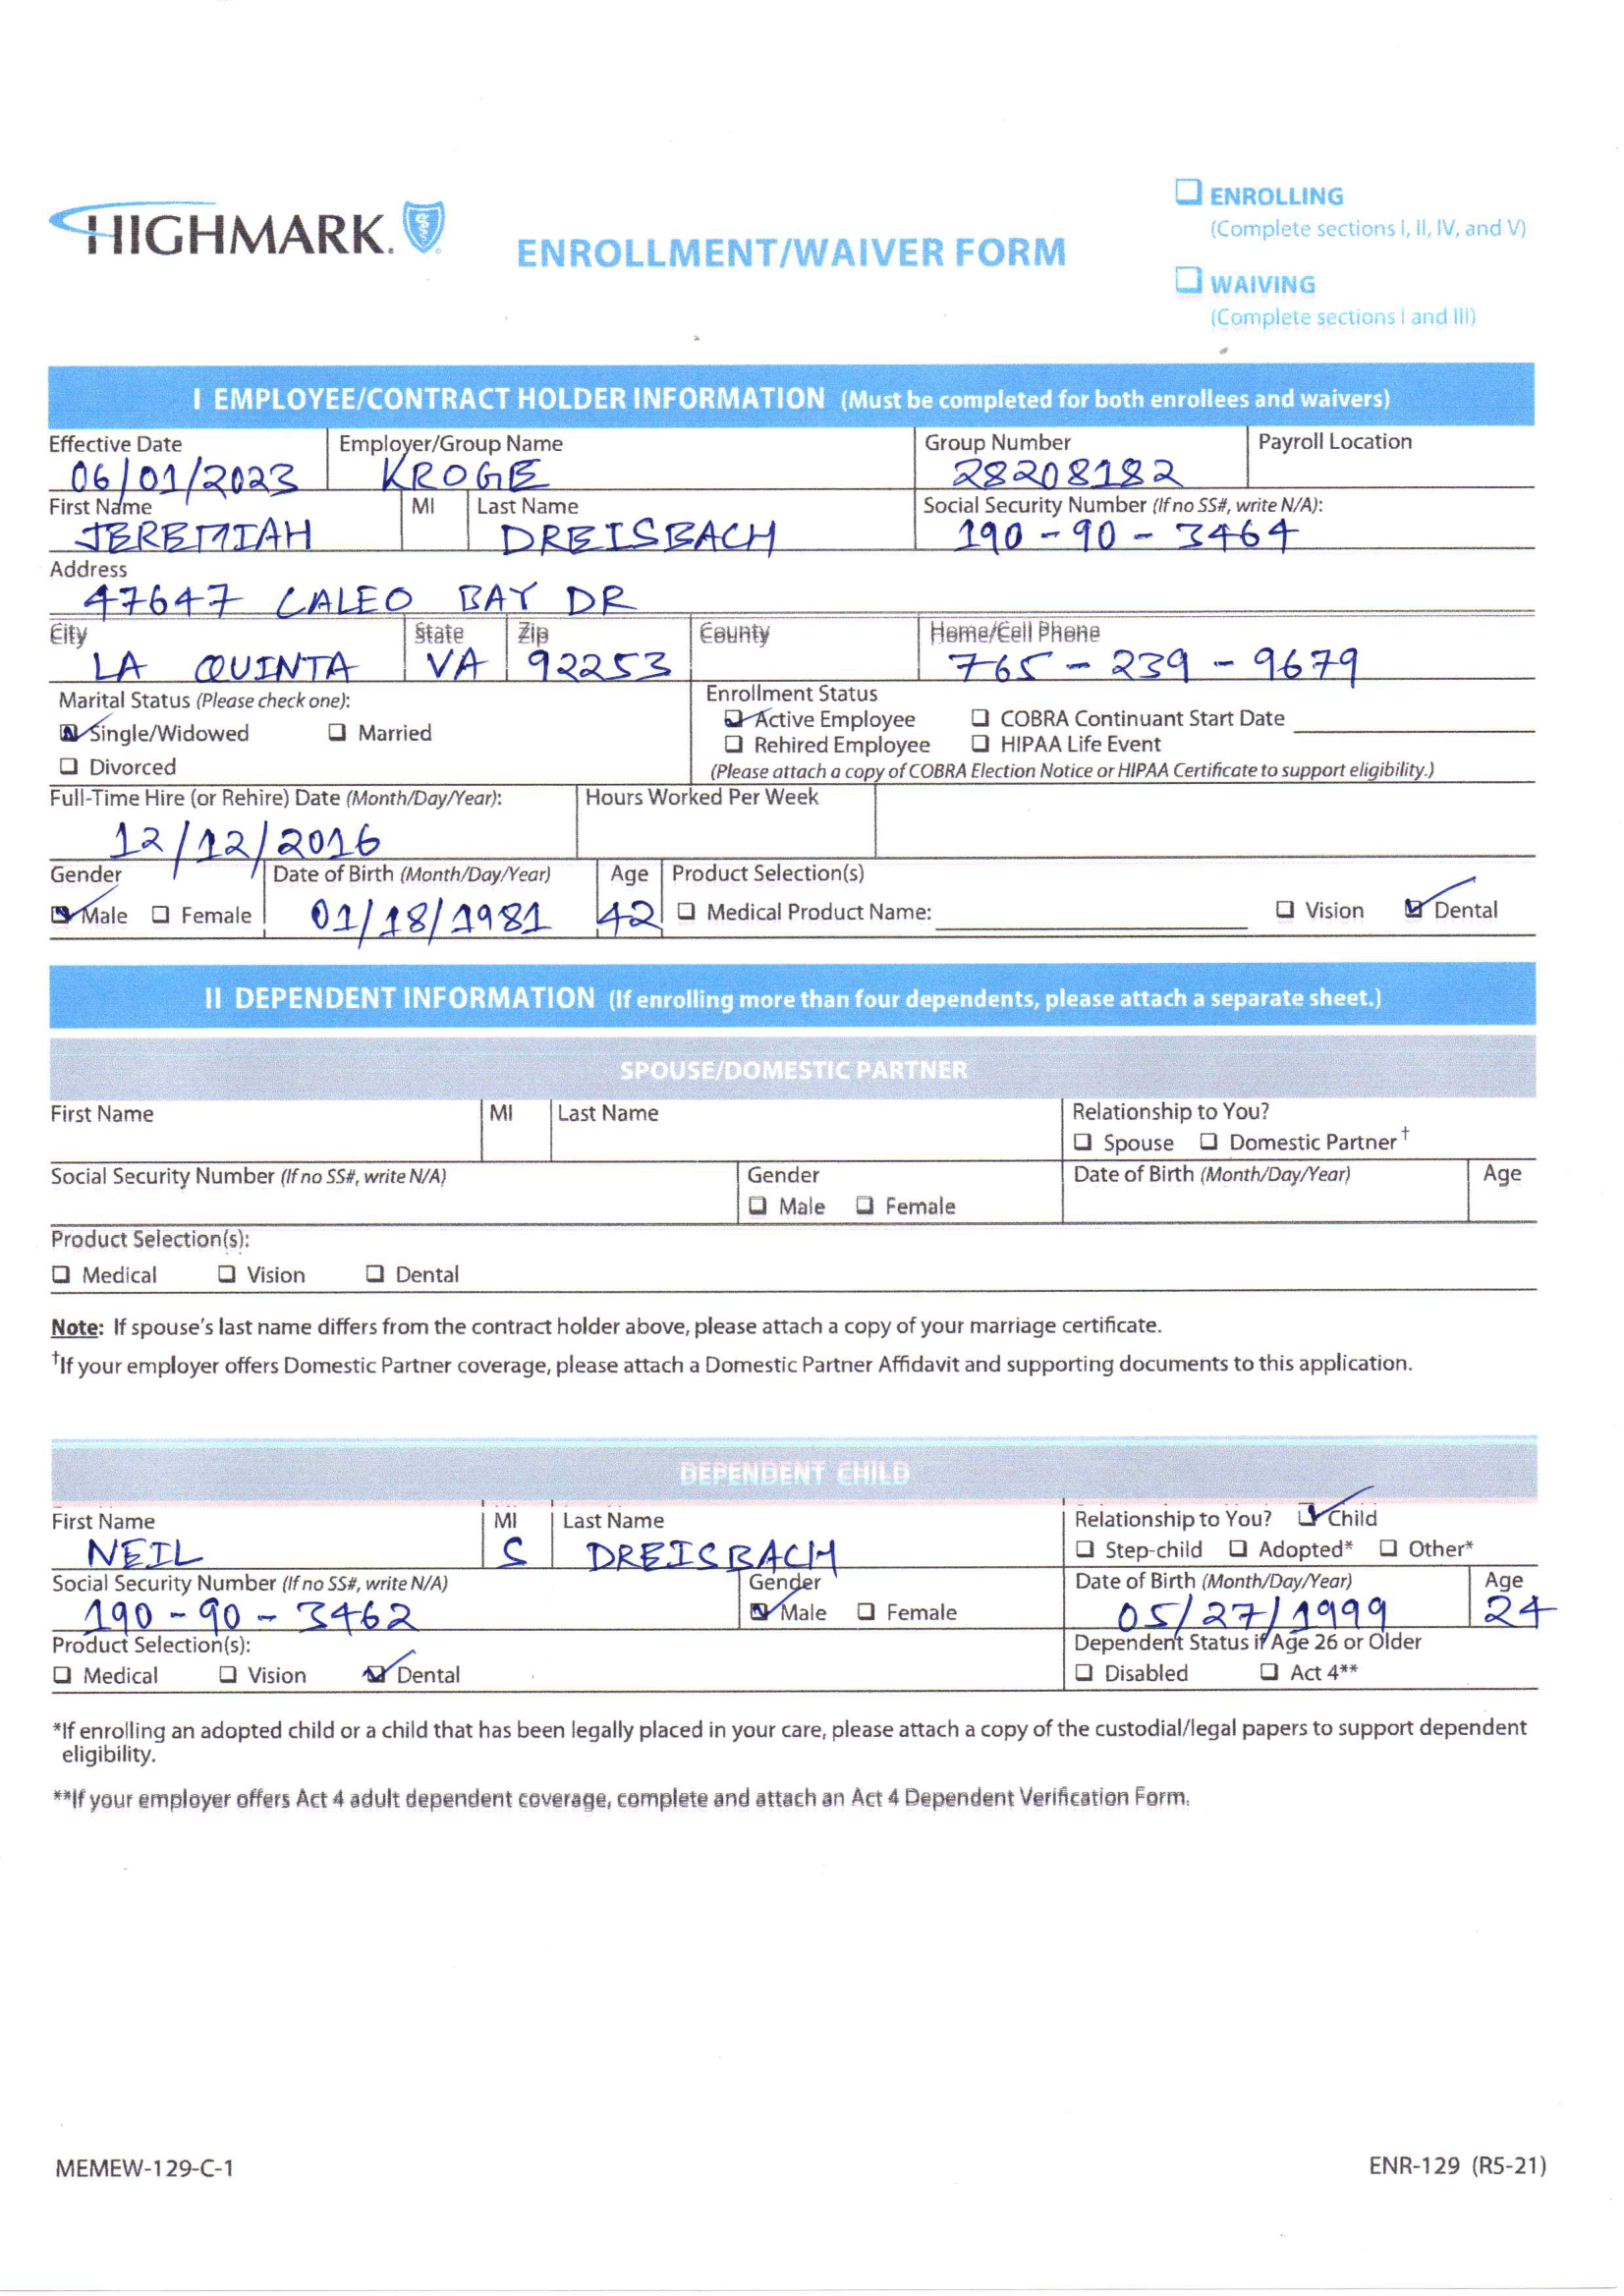 HIGHMARK.
ENROLLMENT/WAIVER FORM
❑ ENROLLING
(Complete sections I, II, IV, and V)
❑ WAIVING
(Complete sections I and III)
I EMPLOYEE/CONTRACT HOLDER INFORMATION (Must be completed for both enrollees and waivers)
Effective Date Employer/Group Name Group Number Payroll Location
06/01/2023 KROGE 28208182
First Name MI Last Name Social Security Number (If no SS#, write N/A):
JEREMIAH DREISBACH 190-90-3464
Address
47647 CALEO BAY DR
City State Zip County Home/Cell Phone
LA QUINTA VA 92253 765-239-9679
Marital Status (Please check one): Enrollment Status
☑ Single/Widowed ❑ Married ☑ Active Employee ❑ COBRA Continuant Start Date
❑ Rehired Employee ❑ HIPAA Life Event
❑ Divorced (Please attach a copy of COBRA Election Notice or HIPAA Certificate to support eligibility.)
Full-Time Hire (or Rehire) Date (Month/Day/Year): Hours Worked Per Week
12/12/2016
Gender Date of Birth (Month/Day/Year) Age Product Selection(s)
☑ Male ❑ Female 01/18/1981 42 ❑ Medical Product Name: ❑ Vision ☑ Dental
II DEPENDENT INFORMATION (If enrolling more than four dependents, please attach a separate sheet.)
SPOUSE/DOMESTIC PARTNER
First Name MI Last Name Relationship to You?
❑ Spouse ❑ Domestic Partner†
Social Security Number (If no SS#, write N/A) Gender Date of Birth (Month/Day/Year) Age
❑ Male ❑ Female
Product Selection(s):
❑ Medical ❑ Vision ❑ Dental
Note: If spouse's last name differs from the contract holder above, please attach a copy of your marriage certificate.
†If your employer offers Domestic Partner coverage, please attach a Domestic Partner Affidavit and supporting documents to this application.
DEPENDENT CHILD
First Name MI Last Name Relationship to You? ☑ Child
NEIL S DREISBACH ❑ Step-child ❑ Adopted* ❑ Other*
Social Security Number (If no SS#, write N/A) Gender Date of Birth (Month/Day/Year) Age
190-90-3462 ☑ Male ❑ Female 05/27/1999 24
Product Selection(s): Dependent Status if Age 26 or Older
❑ Medical ❑ Vision ☑ Dental ❑ Disabled ❑ Act 4**
*If enrolling an adopted child or a child that has been legally placed in your care, please attach a copy of the custodial/legal papers to support dependent
eligibility.
**If your employer offers Act 4 adult dependent coverage, complete and attach an Act 4 Dependent Verification Form.
MEMEW-129-C-1 ENR-129 (R5-21)